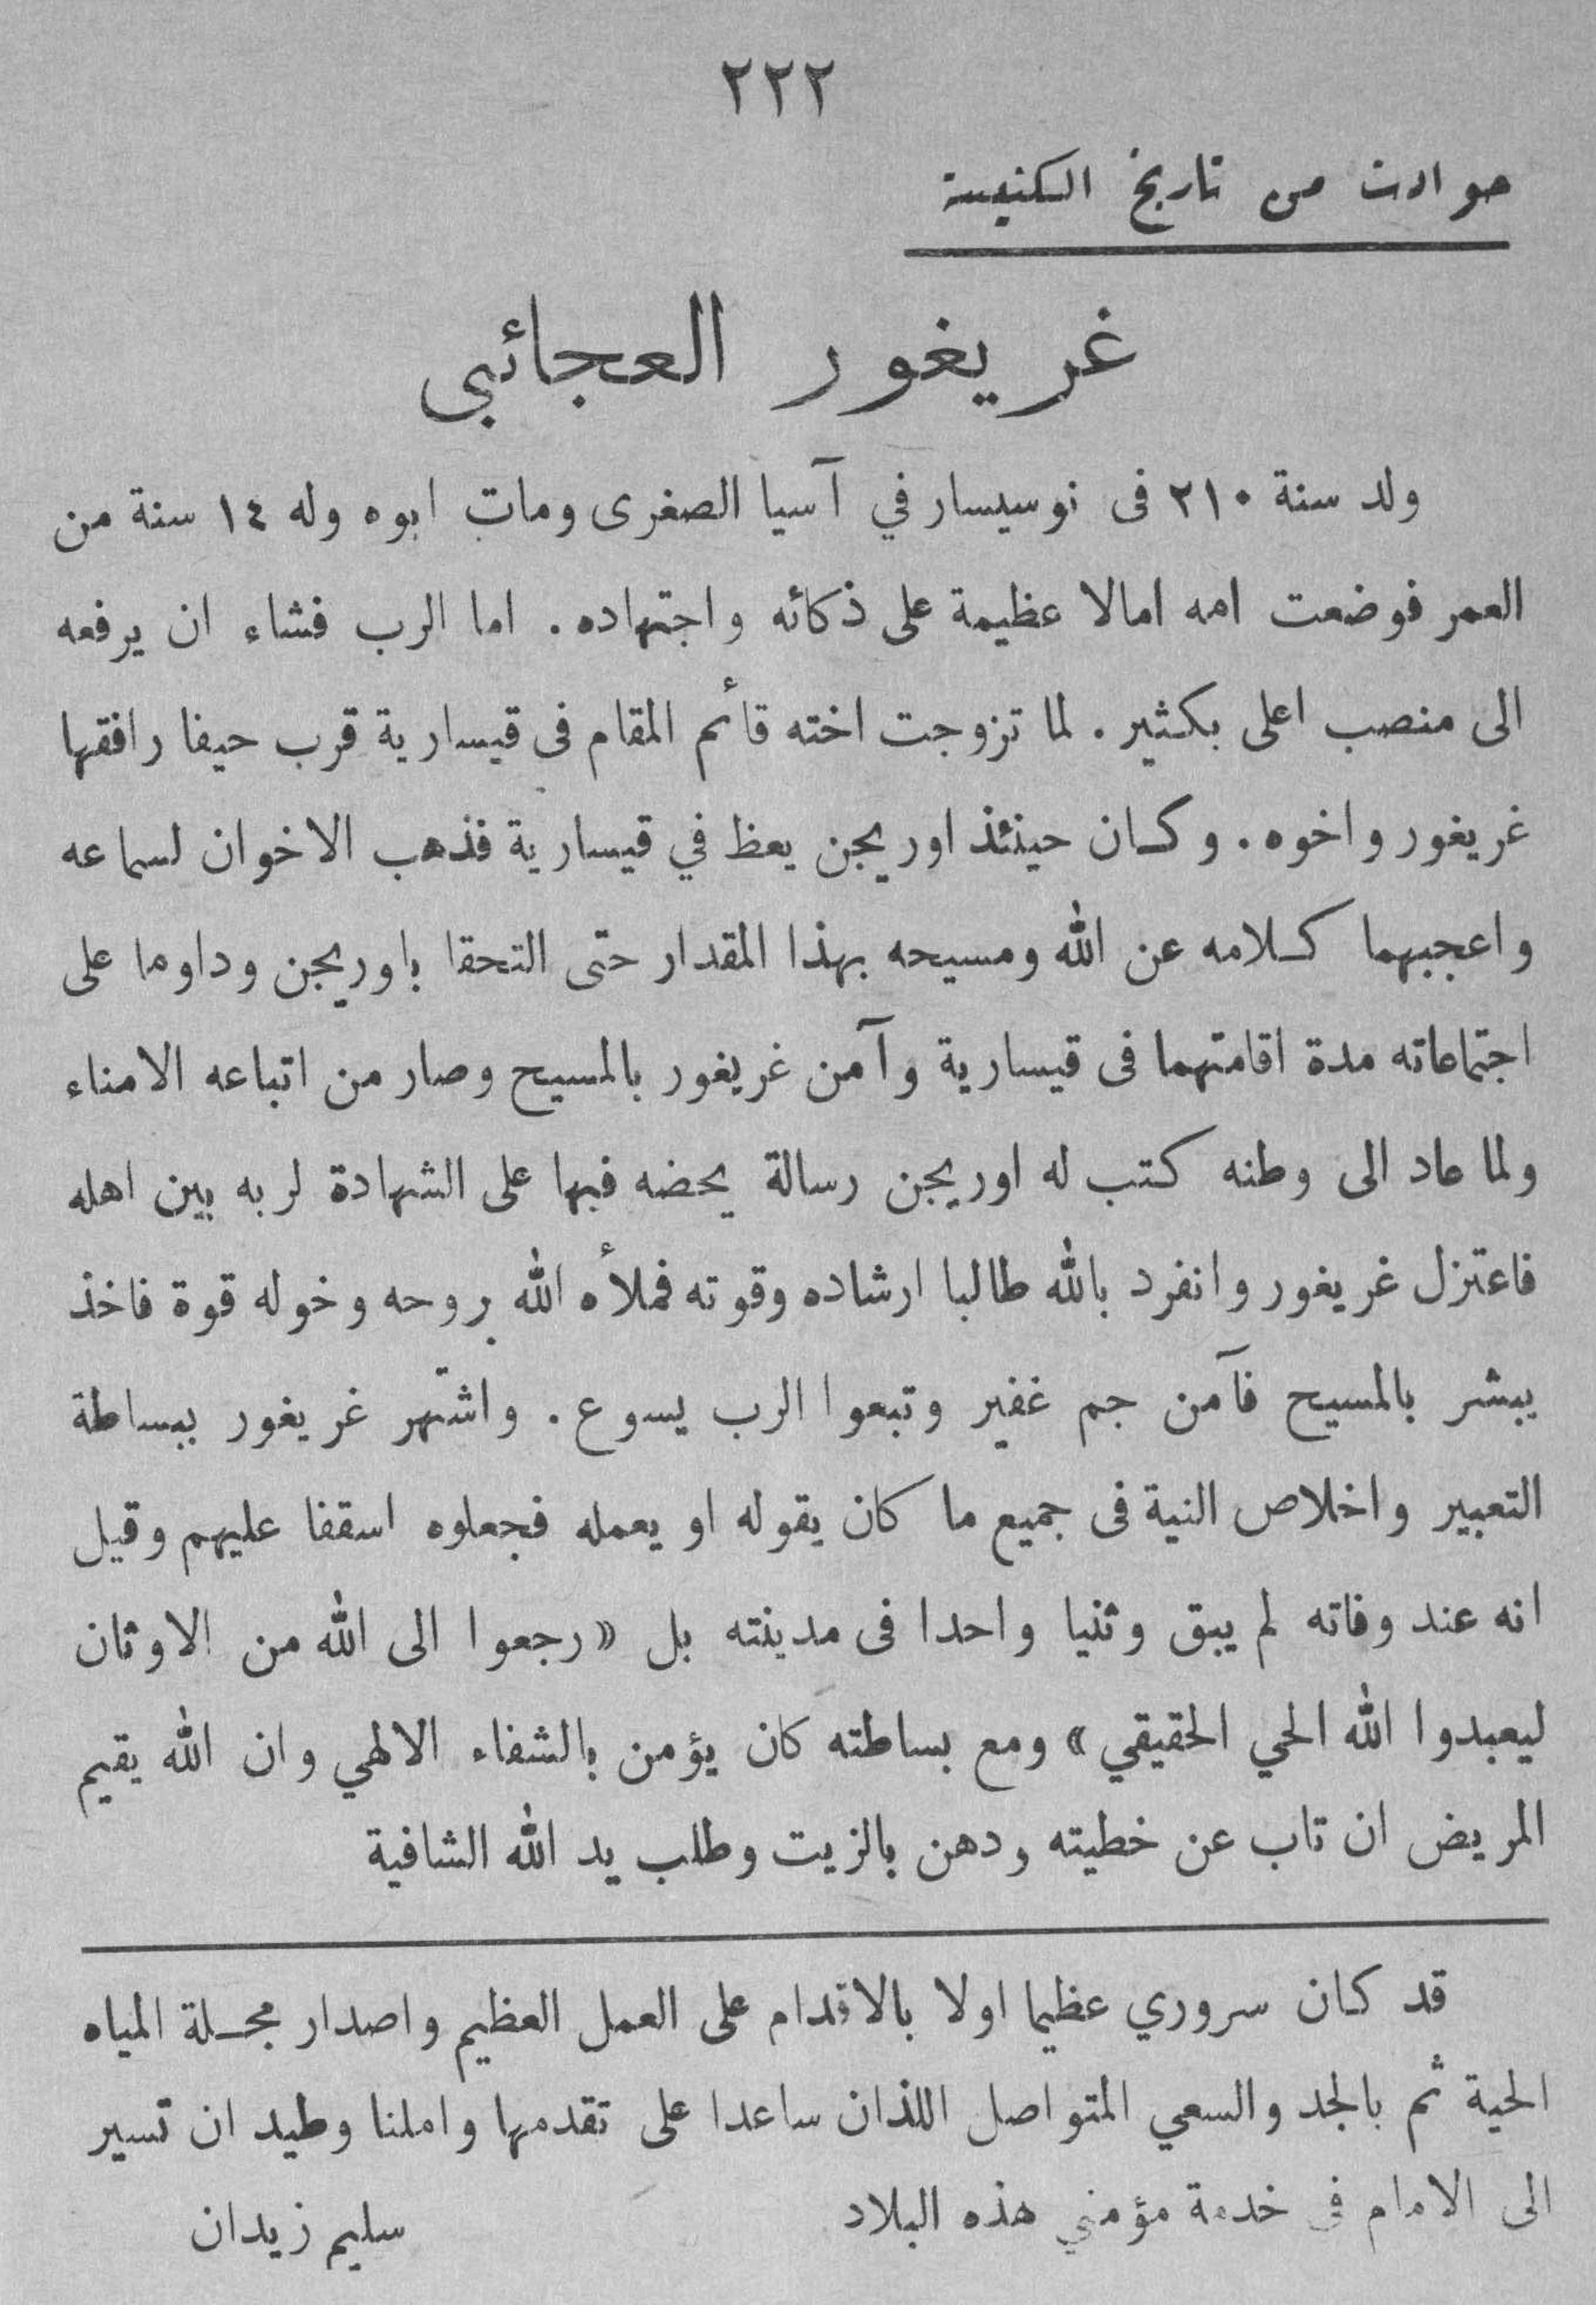 ٢٢٢
حوادث من تاريخ الكنيسة
غريغور العجائبي
ولد سنة ٢١٠ فى نوسيسار في آسيا الصغرى ومات ابوه وله ١٤ سنة من
العمر فوضعت امه امالا عظيمة على ذكائه واجتهاده . اما الرب فشاء ان يرفعه
الى منصب اعلى بكثير . لما تزوجت اخته قائم المقام فى قيسارية قرب حيفا رافقها
غريغور واخوه . وكان حينئذ اوريجن يعظ في قيسارية فذهب الاخوان لسماعه
واعجبهما كلامه عن الله ومسيحه بهذا المقدار حتى التحقا باوريجن وداوما على
اجتماعاته مدة اقامتهما فى قيسارية وآمن غريغور بالمسيح وصار من اتباعه الامناء
ولما عاد الى وطنه كتب له اوريجن رسالة يحضه فيها على الشهادة لربه بين اهله
فاعتزل غريغور وانفرد بالله طالبا ارشاده وقوته فملأه الله بروحه وخوله قوة فاخذ
يبشر بالمسيح فآمن جم غفير وتبعوا الرب يسوع . واشتهر غريغور ببساطة
التعبير واخلاص النية فى جميع ما كان يقوله او يعمله فجعلوه اسقفا عليهم وقيل
انه عند وفاته لم يبق وثنيا واحدا فى مدينته بل « رجعوا الى الله من الاوثان
ليعبدوا الله الحي الحقيقي » ومع بساطته كان يؤمن بالشفاء الالهي وان الله يقيم
المريض ان تاب عن خطيته ودهن بالزيت وطلب يد الله الشافية
قد كان سروري عظيما اولا بالاقدام على العمل العظيم واصدار مجلة المياه
الحية ثم بالجد والسعي المتواصل اللذان ساعدا على تقدمها واملنا وطيد ان تسير
الى الامام فى خدمة مؤمني هذه البلاد سليم زيدان